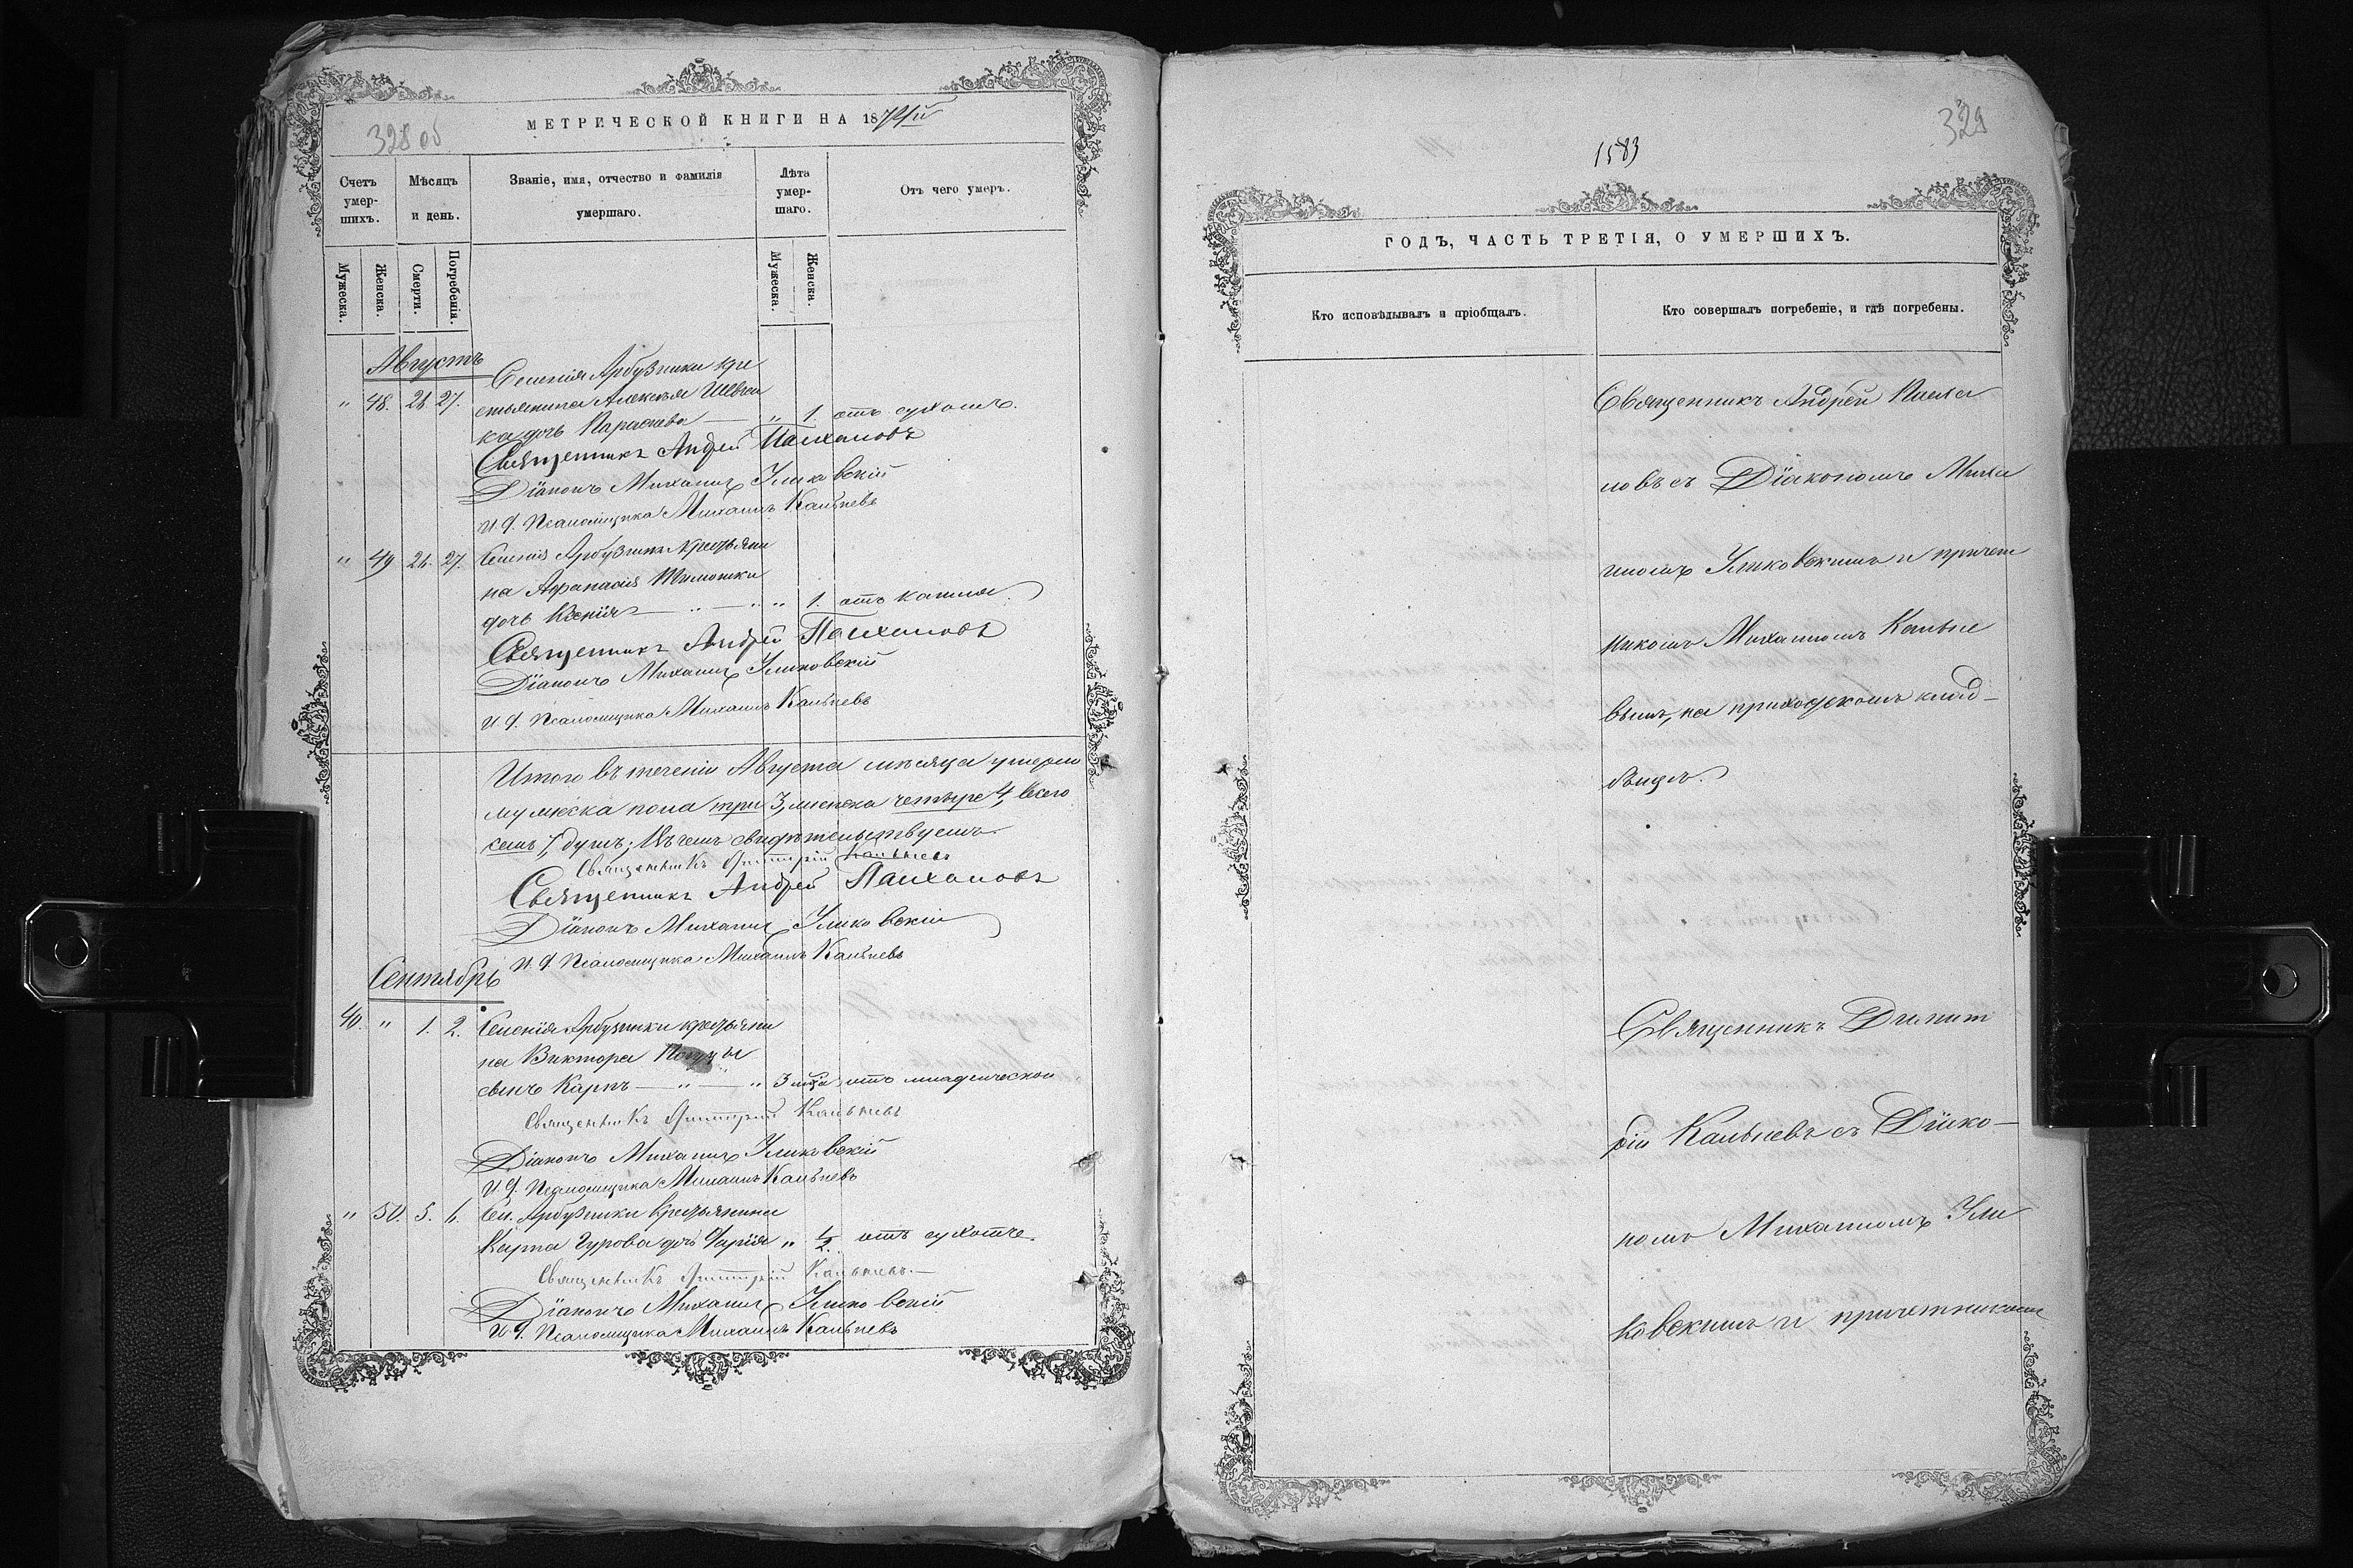 328 об
МЕТРИЧЕСКОЙ КНИГИ НА 187
Счетъ умер-шихъ.
Мѣсяцъ и день.
Званіе, имя, отчество и фамилія умершаго.
Лѣта умер-шаго.
Отъ чего умеръ.
Мужеска.
Женска.
Смерти.
Погребенія.
Мужеска.
Женска.
Августъ
Селенія Арбузинки кре
„ 48. 26. 27. стьянина Алексѣя Шевчен
ка дочь Параскева — „ 1. отъ сухотъ.
Священникъ Андрей
Діаконъ Михаилъ
И. д. Псаломщика Михаилъ Кальневъ
„ 49 26. 27. Селенія Арбузинки крестьяни
на Афанасія Тимошки
дочь Ксенія — „ — „ „ 1. отъ кашля.
Священникъ Андрей
Діаконъ Михаилъ
И. д. Псаломщика Михаилъ Кальневъ
Итого въ теченіи Августа мѣсяца умерло
мужеска пола три 3, женска четыре 4, всего
семь 7, душъ; Въ чемъ свидѣтельствуемъ.
Священникъ Димитрій Кальневъ
Священникъ Андрей
Діаконъ Михаилъ
И. д. Псаломщика Михаилъ Кальневъ
Сентябрь
40. „ 1. 2. Селенія Арбузинки крестьяни
на Виктора
сынъ Карпъ — „ — „ 3 мца отъ младенческой
Священникъ Димитрій Кальневъ
Діаконъ Михаилъ
И. д. Псаломщика Михаилъ Кальневъ
„ 50. 5. 6. Сел. Арбузинки крестьянина
Карпа Гурова дочь Дарія „ 1/2 отъ сухотъ.
Священникъ Димитрій Кальневъ.—
Діаконъ Михаилъ
И. д. Псаломщика Михаилъ Кальневъ
1583
329
ГОДЪ, ЧАСТЬ ТРЕТІЯ, О УМЕРШИХЪ.
Кто исповѣдывалъ и пріобщалъ.
Кто совершалъ погребеніе, и гдѣ погребены.
Священникъ Андрей
новъ съ Діакономъ Миха
иломъ и причет
никомъ Михаиломъ Кальне
вымъ, на приходскомъ клад-
бищѣ.
Священникъ Димит
рій Кальневъ съ Діако-
номъ Михаиломъ
ковскимъ и причетникомъ